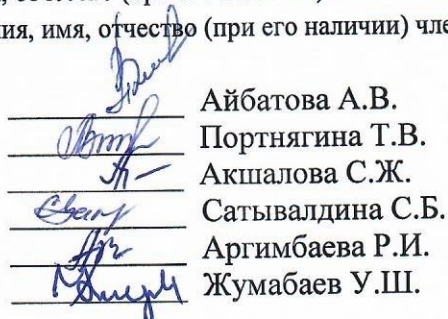 (при его наличии)
ия, имя, отчество (при его наличии) чле
Айбатова А.В.
Портнягина Т.В.
Акшалова С.Ж.
Сатывалдина С.Б.
Аргимбаева Р.И.
Жумабаев У.Ш.